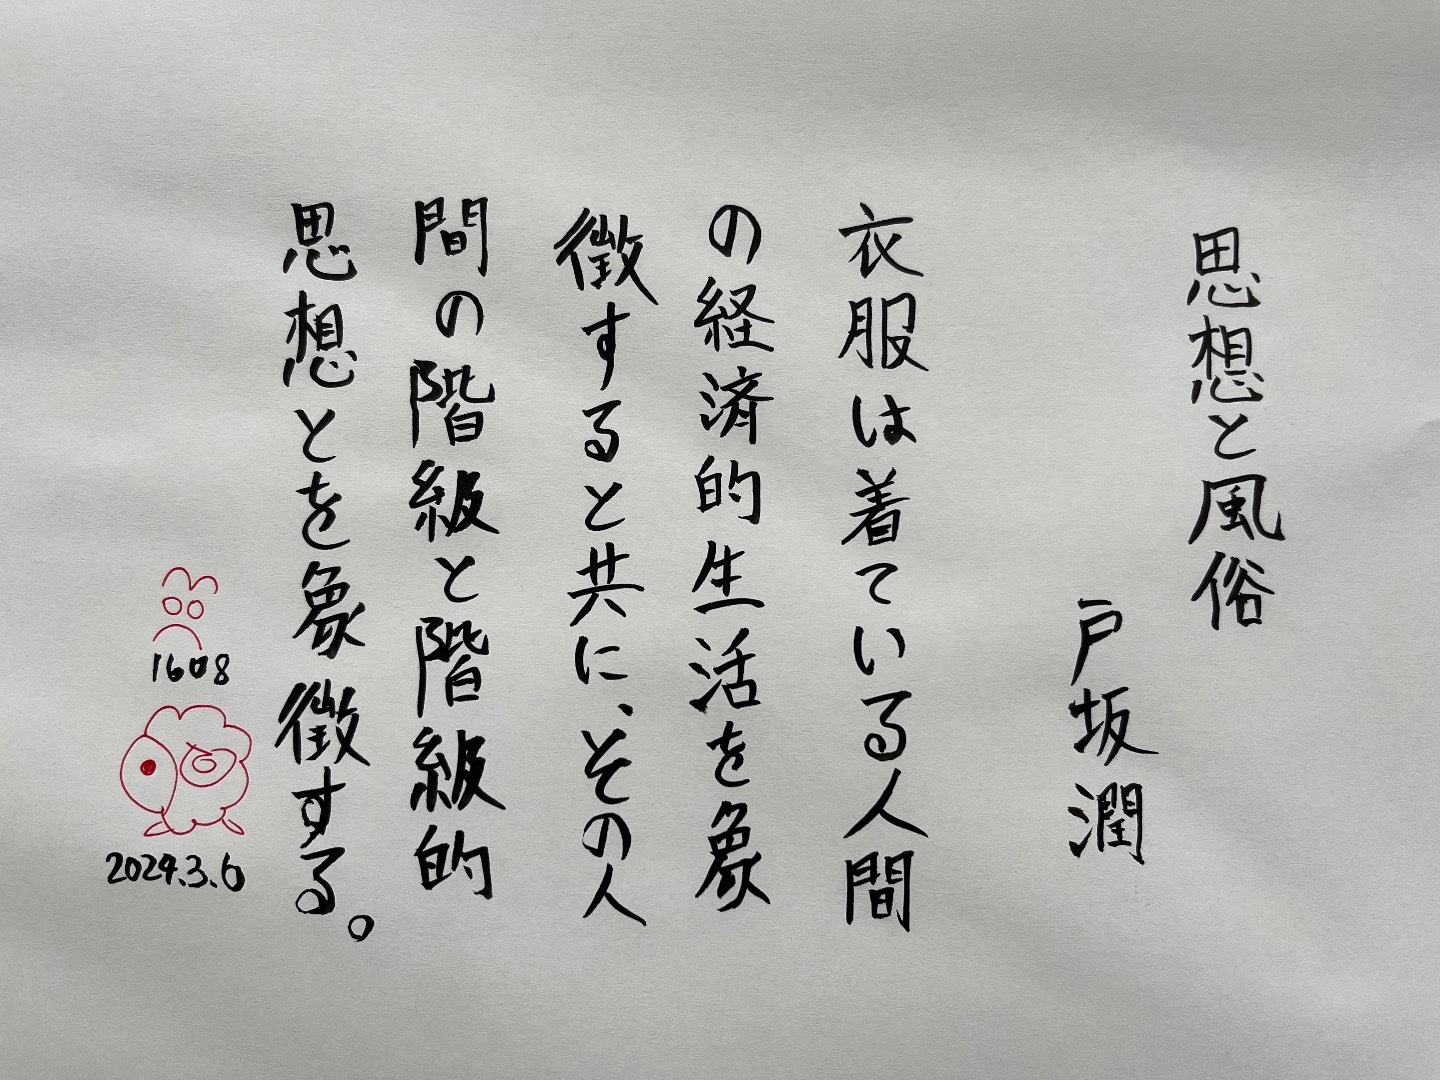 思想と風俗
戸坂潤
衣服は着ている人間
の経済的生活を象
徴すると共に、その人
間の階級と階級的
思想とを象徴する。
1608
2024.3.6